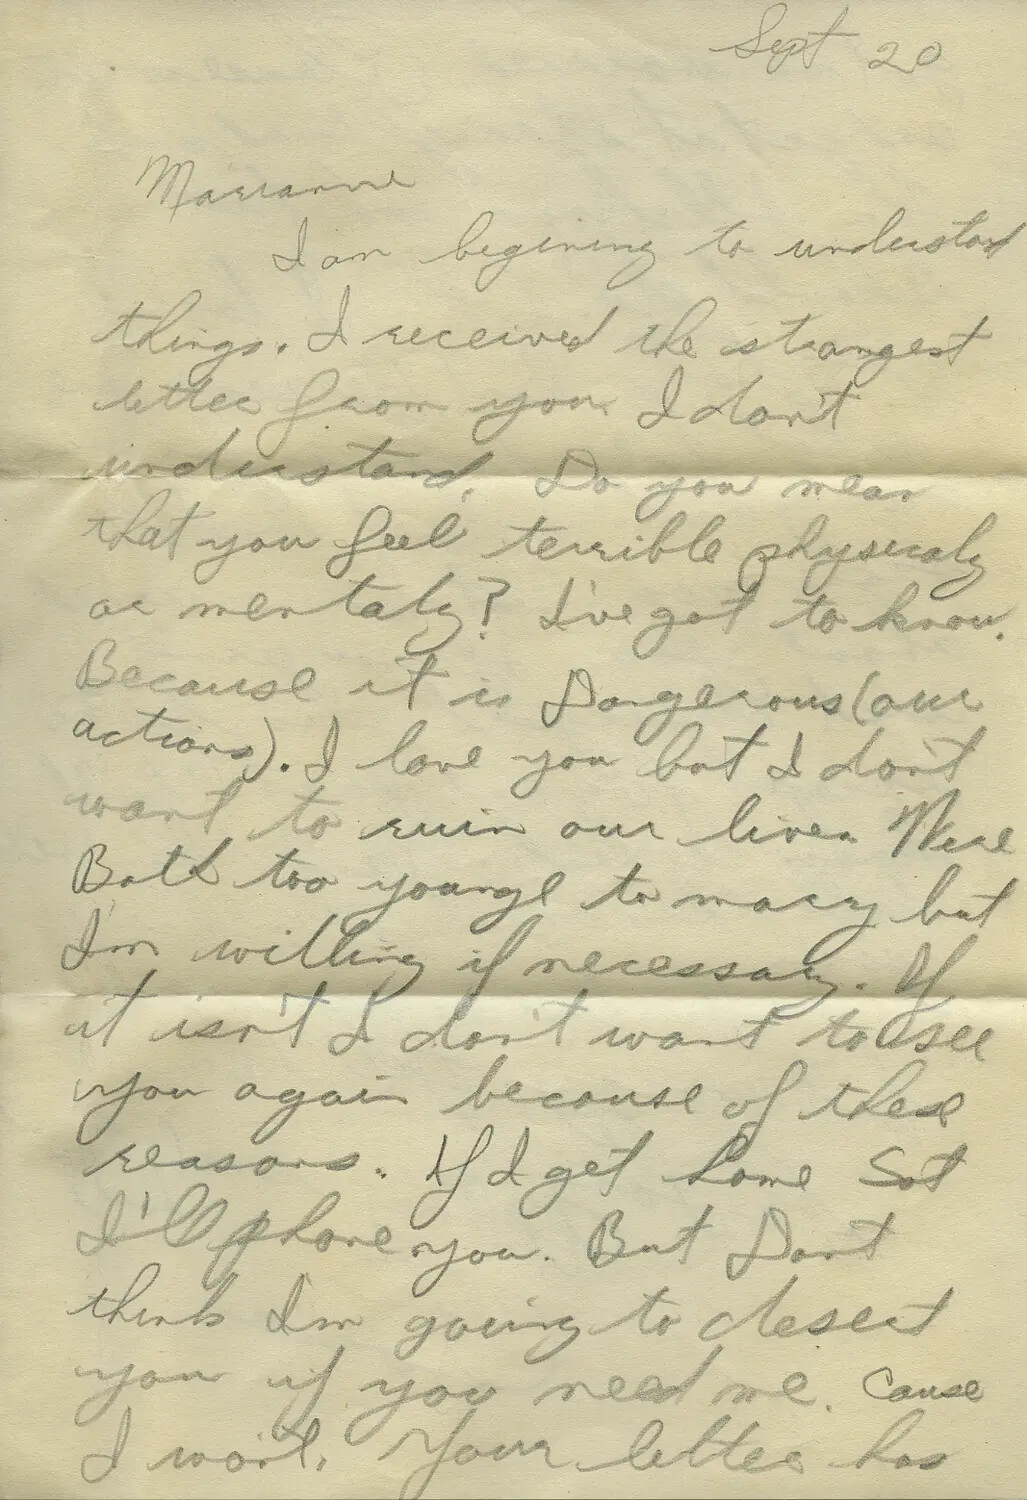 Sept 20
Marianne
I am begining to understand
things. I received the strangest
letter from you. I don't
understand. Do you mean
that you feel terrible physicaly
or mentaly? I've got to know.
Because it is Dangerous (our
actions). I love you but I don't
want to ruin our lives. We're
Both too youngl to marry but
I'm willing if necessary. If
it isn't I don't want to see
you again because of these
reasons. If I get home Sat
I'll phone you. But Dont
think I'm going to desert
you if you need me. Cause
I won't. Your letter has